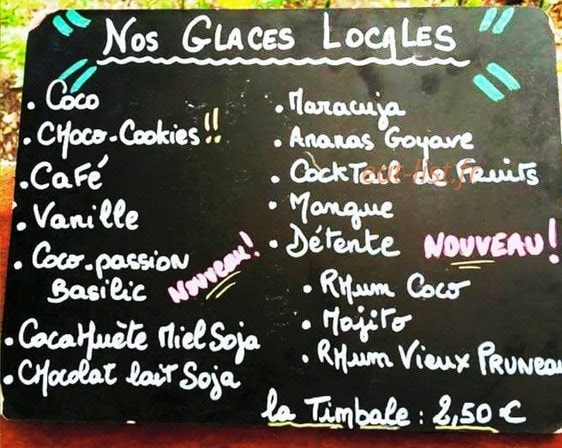 Nos Glaces Locales
• Coco
• CHoco-Cookies!!
• Café
• Vanille
• Coco-passion
Basilic Nouveau!
• CacaHuète Miel Soja
• CHocolat lait Soja
• Maracuja
• Ananas Goyave
• CockTail de Fruits
• Mangue
• Détente NOUVEAU!
• RHum Coco
• Mojito
• RHum Vieux PRUNEAU
la Timbale : 2,50 €